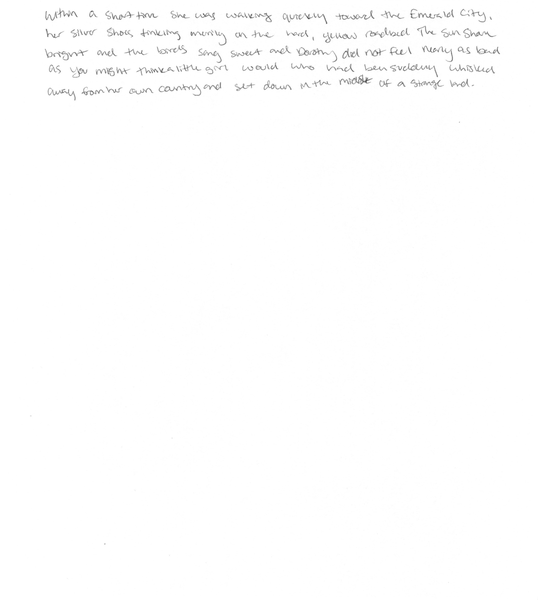 Within a short time she was walking quickly toward the Emerald City,
her Silver Shoes tinkling merrily on the hard, yellow roadbed. The sun shone
bright and the birds sang sweet and Dorothy did not feel nearly as bad
as you might think a little girl would who had been suddenly whisked
away from her own country and set down in the middle of a strange land.